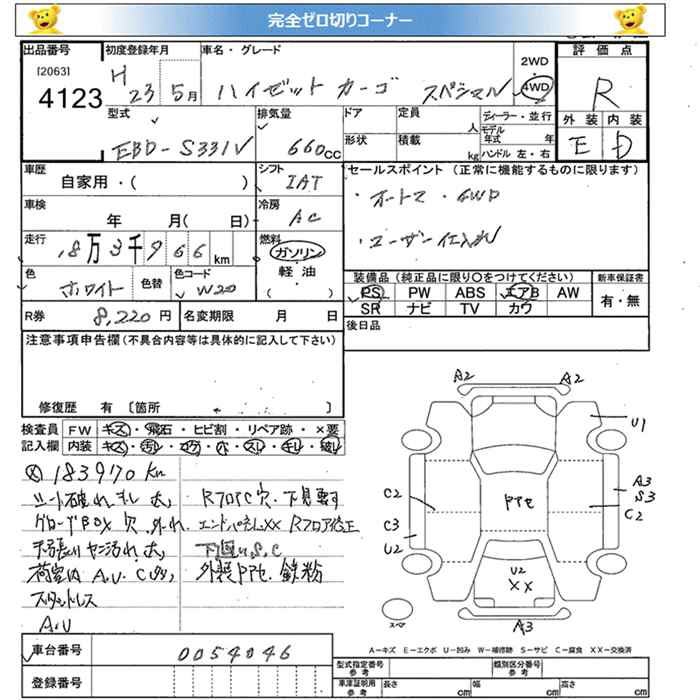 完全ゼロ切りコーナー
出品番号 初度登録年月 車名・グレード 評価点
[2063] 4123 H 23 5月 ハイゼット カーゴ スペシャル 2WD 4WD R
外装 内装
E D
型式 排気量 ドア 定員 人 ディーラー・並行
EBD-S331V 660cc 形状 積載 kg モデル年式 年
ハンドル 左・右
車歴 シフト セールスポイント (正常に機能するものに限ります)
自家用・( ) IAT ・オートマ・4WD
車検 冷房
年 月( 日) AC ・ユーザー仕入れ
走行 燃料
18万3千966km ガソリン
軽油
( ・ )
色 色替 色コード 装備品(純正品に限り○をつけてください) 新車保証書
ホワイト W20 PS PW ABS エアB AW 有・無
SR ナビ TV カワ
R券 8,220円 名変期限 月 日 後日品
注意事項申告欄(不具合内容等は具体的に記入して下さい)
修復歴 有 〔箇所 〕
検査員 FW キズ・飛石・ヒビ割・リペア跡・×要
記入欄 内装 キズ・汚レ・コゲ・穴・スレ・キレ・破レ
183970Km
シート破れ キレ 大、 RフロアC穴、下見要す
グローブBOX 穴、外れ、 エンドパネルXX Rフロア修正
天張り ヤニ汚れ大、 下回りS、C
荷室内 A.U. C 外装P12、鉄粉
スタッドレス
A.U
A2 A2
U1
C2 A3
S3
C2
C3
U2
U2
XX
A3
スペア
A-キズ E-エクボ U-凹み W-補修跡 S-サビ C-腐食 XX-交換済
車台番号 0054046 型式指定番号 参考 類別区分番号 参考
登録番号 車庫証明用 参考 長さ cm 幅 cm 高さ cm